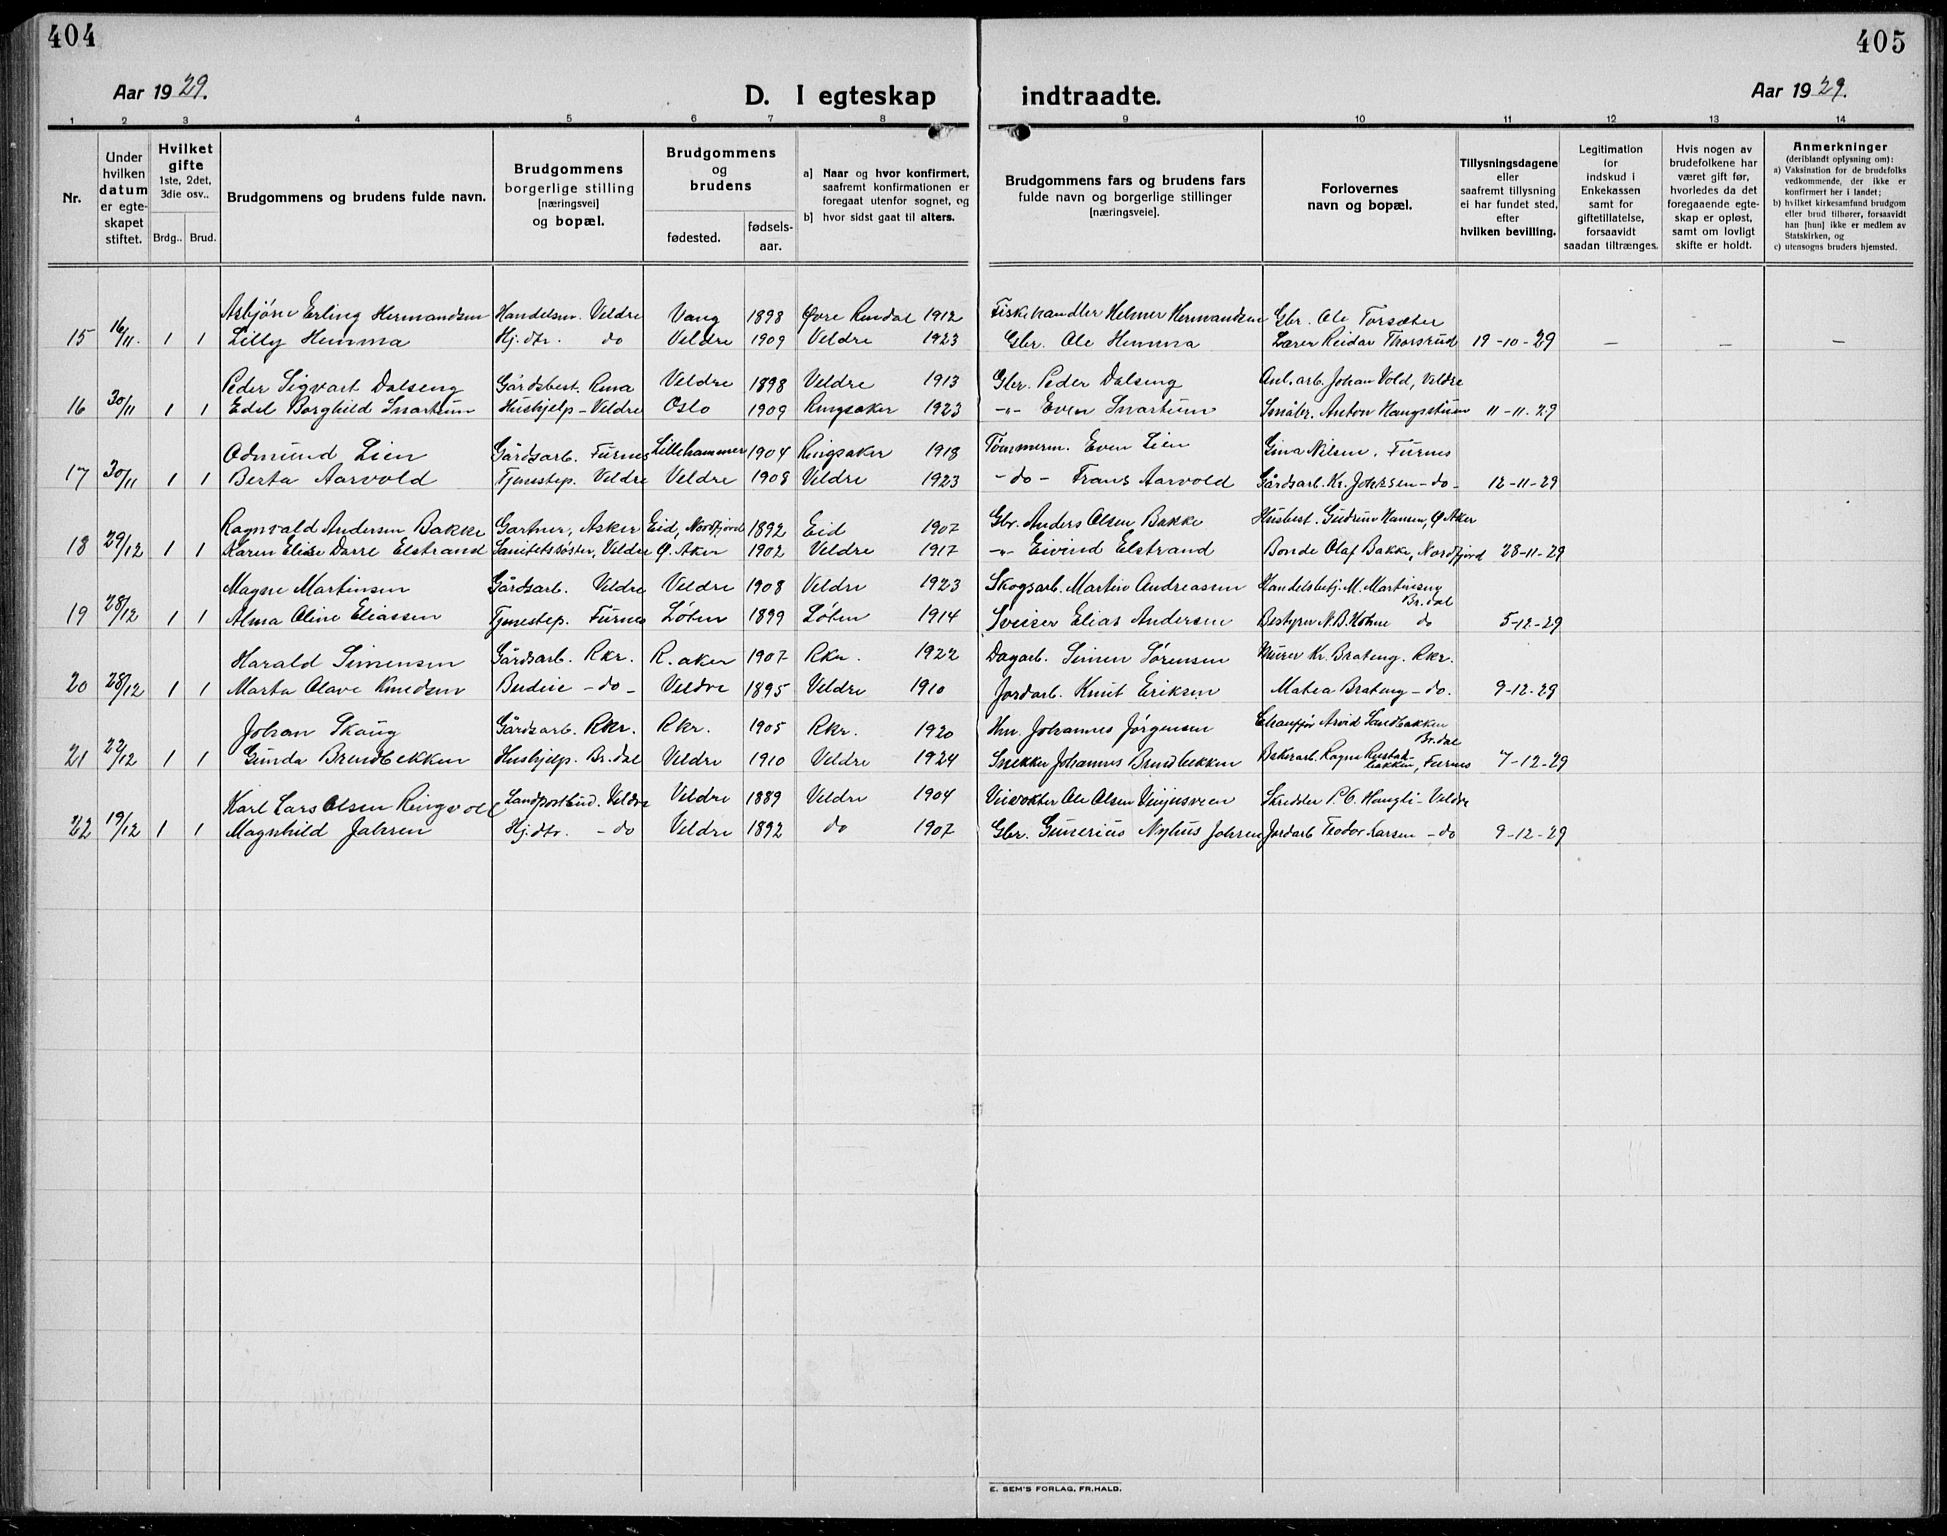 404
405
Aar 1929.
D. I egteskap indtraadte.
Aar 1929.
1 2 3 4 5 6 7 8 9 10 11 12 13 14
Nr.
Under hvilken datum er egteskapet stiftet.
Hvilket gifte 1ste, 2det, 3die osv..
Brdg.. Brud.
Brudgommens og brudens fulde navn.
Brudgommens borgerlige stilling [næringsvei] og bopæl.
Brudgommens og brudens
fødested. fødsels-aar.
a) Naar og hvor konfirmert, saafremt konfirmationen er foregaat utenfor sognet, og
b) hvor sidst gaat til alters.
Brudgommens fars og brudens fars fulde navn og borgerlige stillinger [næringsveie].
Forlovernes navn og bopæl.
Tillysningsdagene eller saafremt tillysning ei har fundet sted, efter hvilken bevilling.
Legitimation for indskud i Enkekassen samt for giftetillatelse, forsaavidt saadan tiltrænges.
Hvis nogen av brudefolkene har været gift før, hvorledes da det foregaaende egteskap er opløst, samt om lovligt skifte er holdt.
Anmerkninger (deriblandt oplysning om):
a) Vaksination for de brudefolks vedkommende, der ikke er konfirmert her i landet;
b) hvilket kirkesamfund brudgom eller brud tilhører, forsaavidt han [hun] ikke er medlem av Statskirken, og
c) utensogns bruders hjemsted.
Asbjørn Erling Hermandsen Handelsm. Veldre Vang 1898 Øvre Rendal 1912 Fiskehandler Helmer Hermandsen Gbr. Ole Torsæter
15 16/11. 1 1 Lilly Hemma Hj. dtr. do Veldre 1909 Veldre 1923 Gbr. Ole Hemma Lærer Reidar Thorsrud 19-10-29 – – –
Peder Sigvart Dalseng Gårdsbest. Rena Veldre 1898 Veldre 1913 Gbr. Peder Dalseng Anl. arb. Johan Vold, Veldre
16 30/11 1 1 Edel Borghild Snartum Hushjelp - Veldre Oslo 1909 Ringsaker 1923 -"- Even Snartum Småbr. Anton Haugsstuen 11-11-29
Odmund Lien Gårdsarb. Furnes Lillehammer 1904 Ringsaker 1918 Tømmerm. Even Lien Gina Nilsen, Furnes
17 30/11 1 1 Berta Aarvold Tjenestep. Veldre Veldre 1908 Veldre 1923 - do - Frans Aarvold Gårdsarb. Kr. Johnsen - do - 12-11-29
Ragnvald Andersen Bakke Gartner, Asker Eid, Nordfjord 1892 Eid 1907 Gbr. Anders Olsen Bakke Husbest. Gudrun Hansen, Ø. Aker
18 29/12 1 1 Karen Elise Darre Elstrand Sanitetssøster, Veldre Ø. Aker 1902 Veldre 1917 -"- Eivind Elstrand Bonde Olaf Bakke, Nordfjord 28-11-29
Magne Martinsen Gårdsarb. Veldre Veldre 1908 Veldre 1923 Skogsarb. Martin Andreassen Handelsbetj. M. Martinseng
Br.dal
19 28/12 1 1 Alma Oline Eliassen Tjenestep. Furnes Løten 1899 Løten 1914 Sveiser Elias Andersen Bestyrer N. B. do 5-12-29
Harald Simensen Gårdsarb. Rkr. R.aker 1907 Rkr. 1922 Dagarb. Simen Sørensen Murer Kr. Brateng. Rkr.
20 28/12 1 1 Marta Olave Knudsen Budeie - do - Veldre 1895 Veldre 1910 Jordarb. Knut Eriksen Matea Brateng - do. 9-12-29
Johan Skaug Gårdsarb. Rkr. Rkr. 1905 Rkr. 1920 Hm. Johannes Jørgensen Chauffør Arvid Sandbakken
Br.dal
21 22/12 1 1 Gunda Brendbekken Hushjelp. Br.dal Veldre 1910 Veldre 1924 Snekker Johannes Brendbekken Bakerarb. Ragna Rustadbakken, Furnes 7-12-29
Karl Lars Olsen Ringvoll Landpostbud. Veldre Veldre 1889 Veldre 1904 Veivokter Ole Olsen Skredder P. O. Haugli - Veldre
22 19/12 1 1 Magnhild Johnsen Hj. dtr. - do Veldre 1892 do 1907 Gbr. Gunerius Nyhus Johnsen Jordarb. Teodor Larsen - do 9-12-29
E. SEM'S FORLAG, FR.HALD.